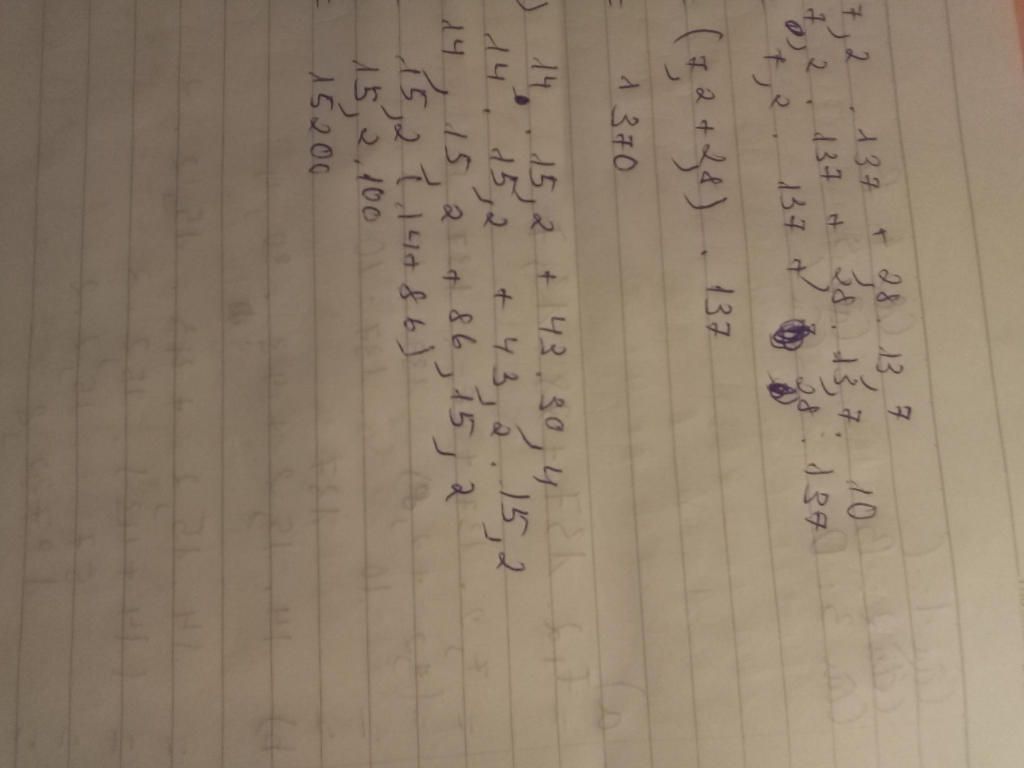 7,2 . 137 + 28 . 13 7
7,2 . 137 + 28 . 13,7 . 10
7,2 . 137 + 28 . 137
(7,2 + 2,8) . 137
= 1370
) 14 . 15,2 + 43 . 30,4
14 . 15,2 + 43,2 . 15,2
14, 15,2 + 86, 15,2
15,2 ( 14 + 86)
15,2 . 100
= 15200